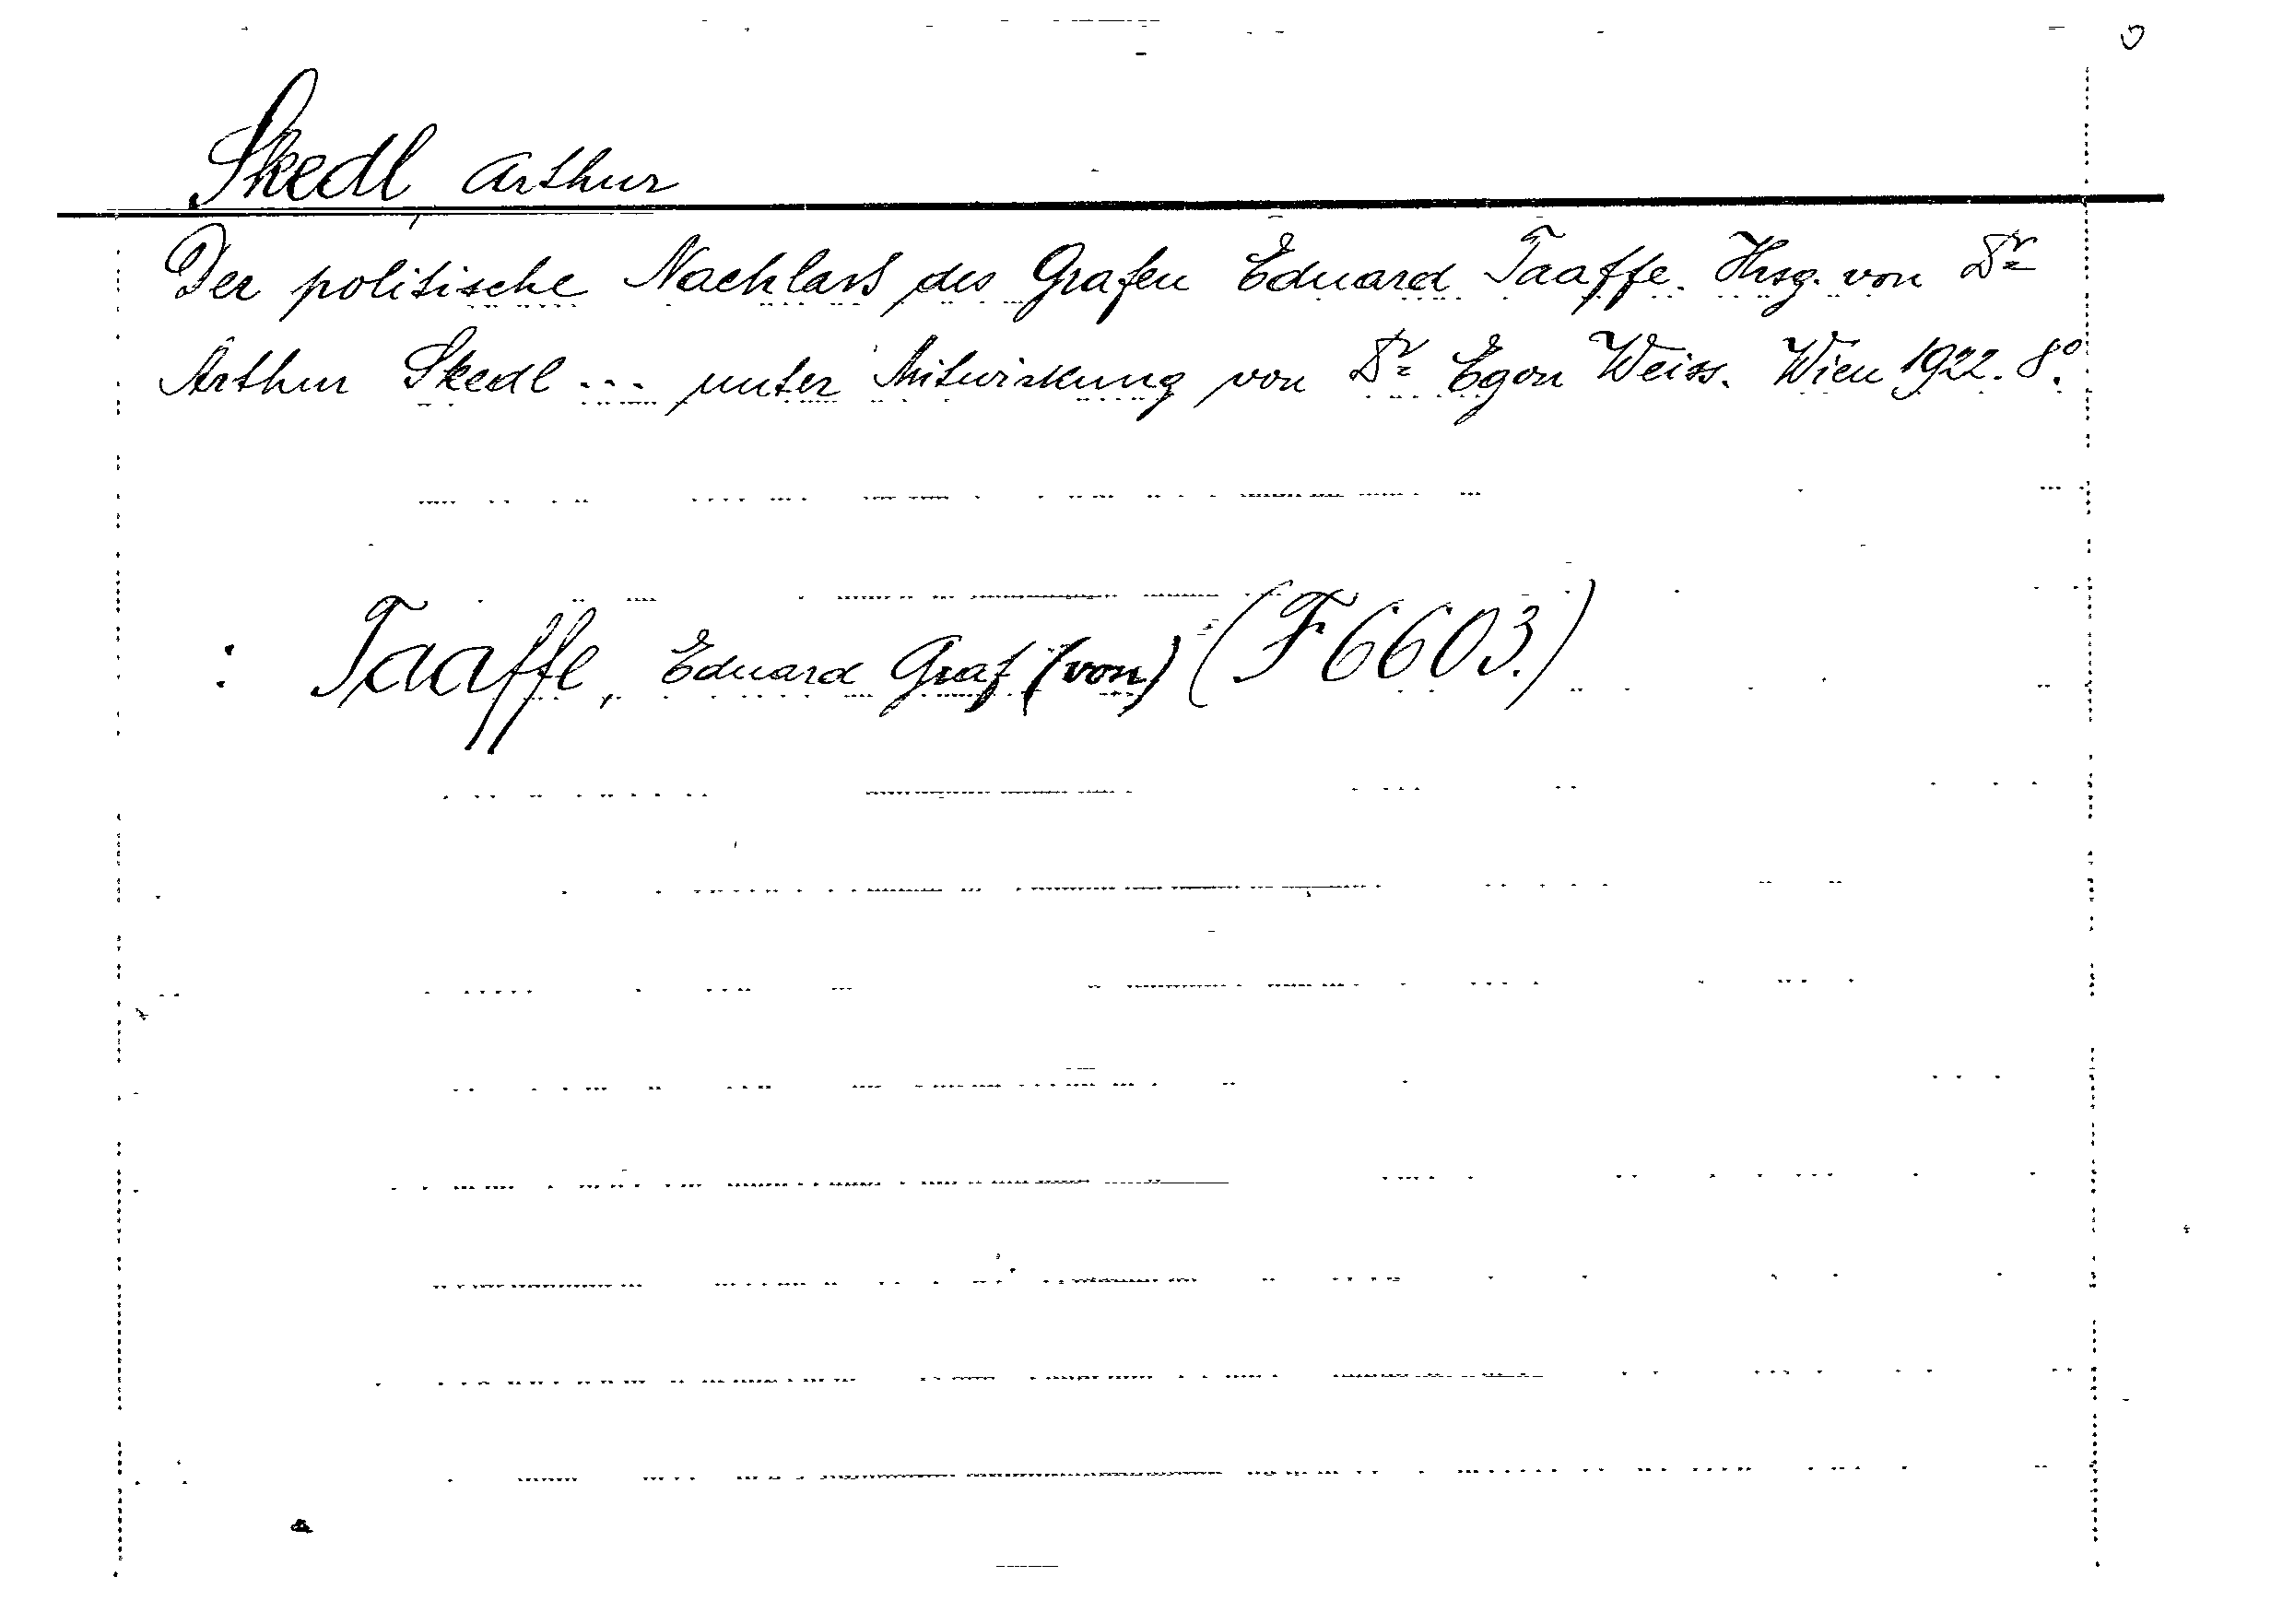 Skedl, Arthur
Der politische Nachlass des Grafen Eduard Taaffe. Hrsg. von Dr
Arthur Skedl ... unter Mitwirkung von Dr Egon Weiss. Wien 1922. 8°.
: Taaffe, Eduard Graf (von) (F 6603.)